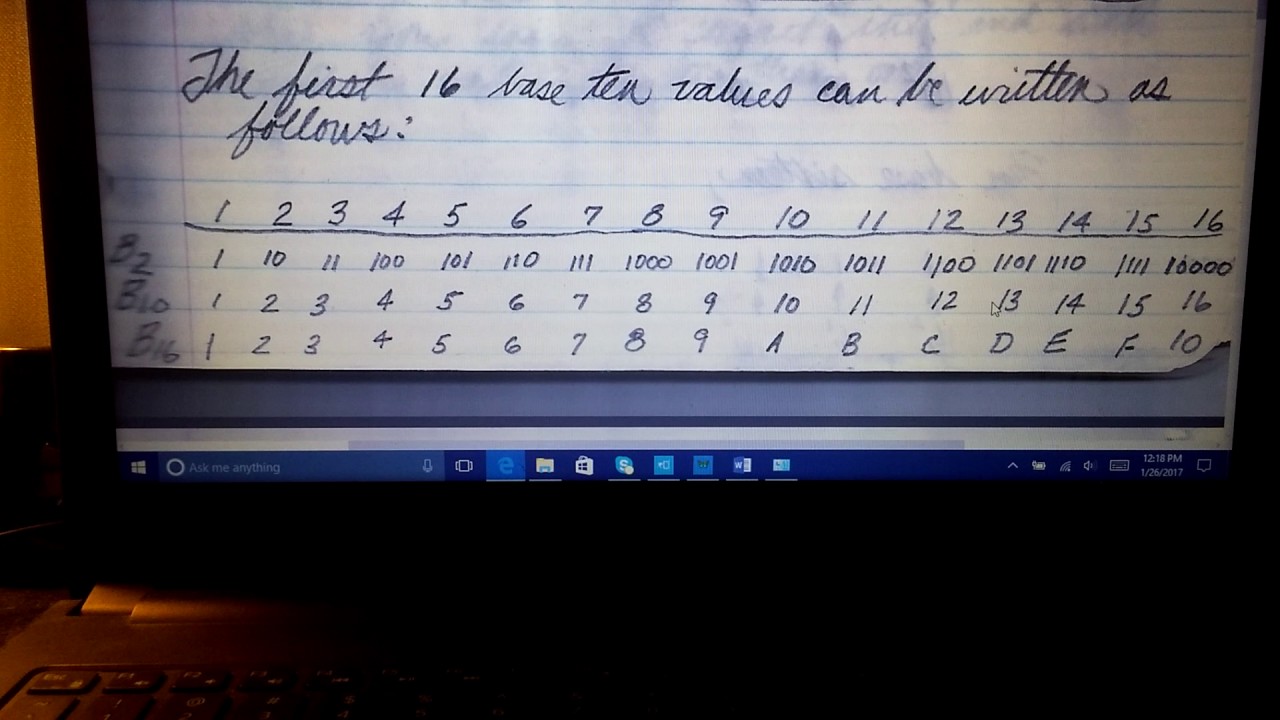 The first 16 base ten values can be written as
follows:
1 2 3 4 5 6 7 8 9 10 11 12 13 14 15 16
B2 1 10 11 100 101 110 111 1000 1001 1010 1011 1100 1101 1110 1111 10000
B10 1 2 3 4 5 6 7 8 9 10 11 12 13 14 15 16
B16 1 2 3 4 5 6 7 8 9 A B C D E F 10
Ask me anything
12:18 PM
1/26/2017